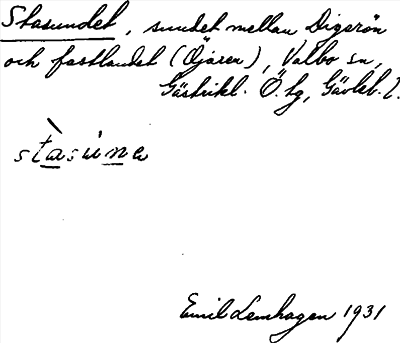 Stasundet, sundet mellan Digerön
och fastlandet (Öjaren), Valbo sn,
Gästrikl. Ö. hg, Gävleb. l.
stàsúne
Emil Lemhagen 1931